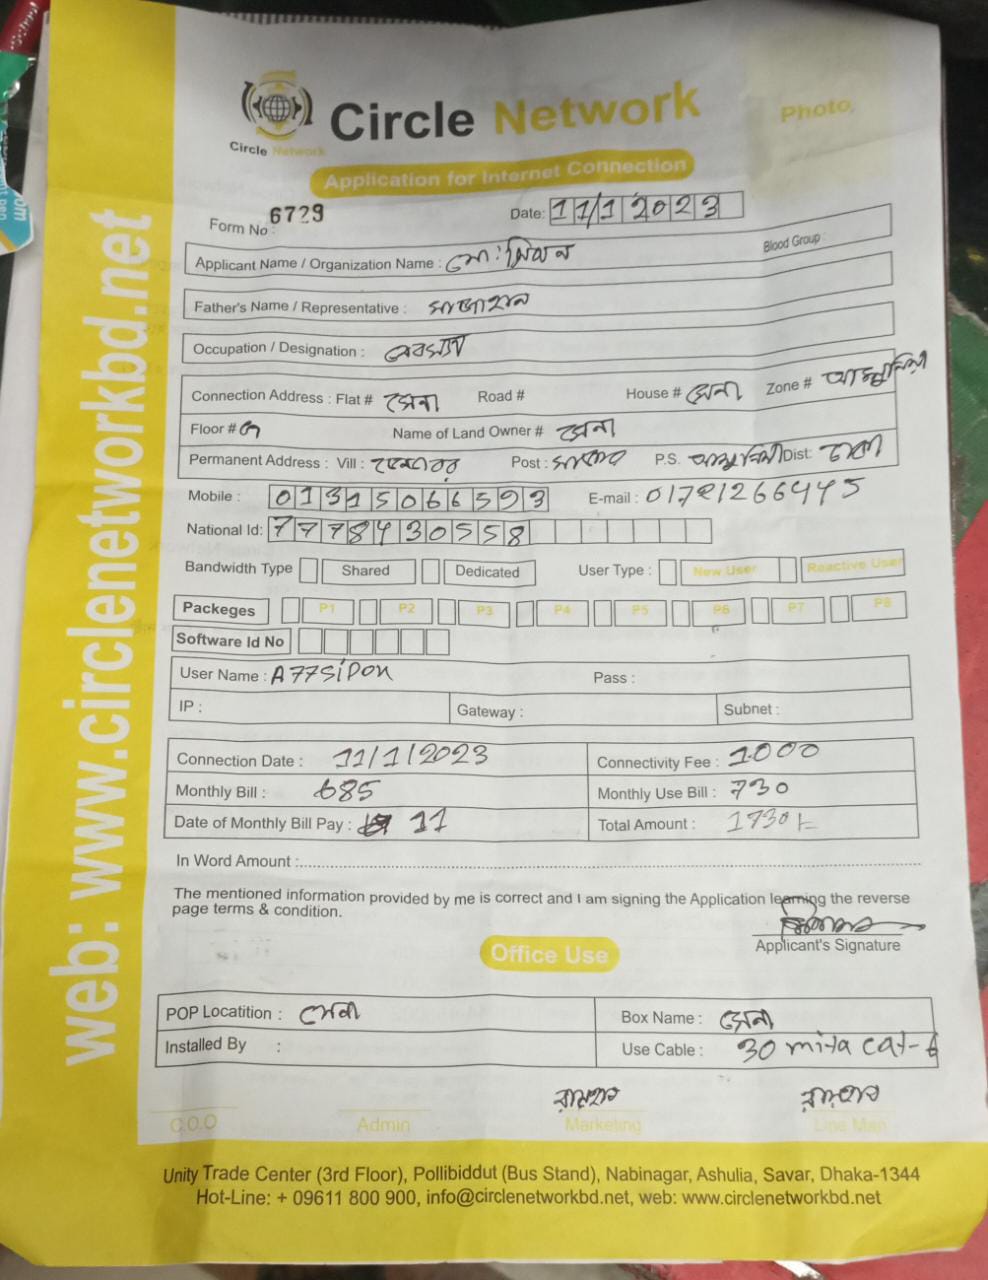 Circle Network
Circle Network
Photo,
Application for Internet Connection
Form No : 6729
Date: 11/1 2023
Applicant Name / Organization Name : মো: মিলন
Blood Group :
Father's Name / Representative :
Occupation / Designation :
Connection Address : Flat # সেনা Road # House # সেনা Zone # আশুলিয়া
Floor # Name of Land Owner # সেনা
Permanent Address : Vill : Post : সাভার P.S. আশুলিয়া Dist: ঢাকা
Mobile : 01315066593 E-mail : 01721266445
National Id: 7778430558
Bandwidth Type Shared Dedicated User Type : New User Reactive User
Packeges P1 P2 P3 P4 P5 P6 P7 P8
Software Id No
User Name : A77SiPON Pass :
IP : Gateway : Subnet :
Connection Date : 11/1/2023 Connectivity Fee : 1000
Monthly Bill : 685 Monthly Use Bill : 730
Date of Monthly Bill Pay : 11 Total Amount : 1730/=
In Word Amount :
The mentioned information provided by me is correct and I am signing the Application learning the reverse
page terms & condition.
Applicant's Signature
Office Use
POP Locatition : সেনা Box Name : সেনা
Installed By : Use Cable : 30 mita cat-6
C.O.O Admin Marketing Line Man
Unity Trade Center (3rd Floor), Pollibiddut (Bus Stand), Nabinagar, Ashulia, Savar, Dhaka-1344
Hot-Line: + 09611 800 900, info@circlenetworkbd.net, web: www.circlenetworkbd.net
web: www.circlenetworkbd.net